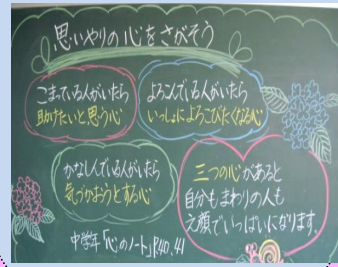 思いやりの心をさがそう
こまっている人がいたら
助けたいと思う心
よろこんでいる人がいたら
いっしょによろこびたくなる心
かなしんでいる人がいたら
気づかおうとする心
三つの心があると
自分もまわりの人も
えがおでいっぱいになります。
中学年「心のノート」P.40.41